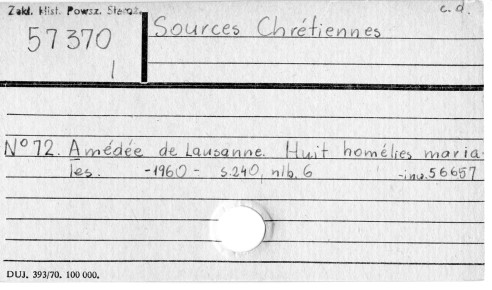 Zakł. Hist. Powsz. Staroż.
c.d.
57370
Sources Chrétiennes
1
N° 72. Amédée de Lausanne. Huit homélies maria-
les. -1960- s.240, nlb. 6 -inw. 56657
DUJ. 393/70. 100 000.